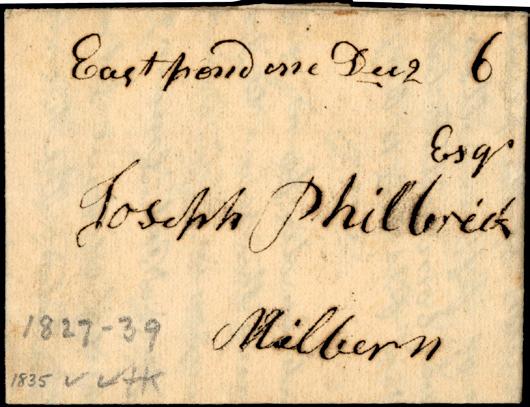 Eastpond me Dec 2 6
Esqr
Joseph Philbrick
Milbern
1827-39
1835